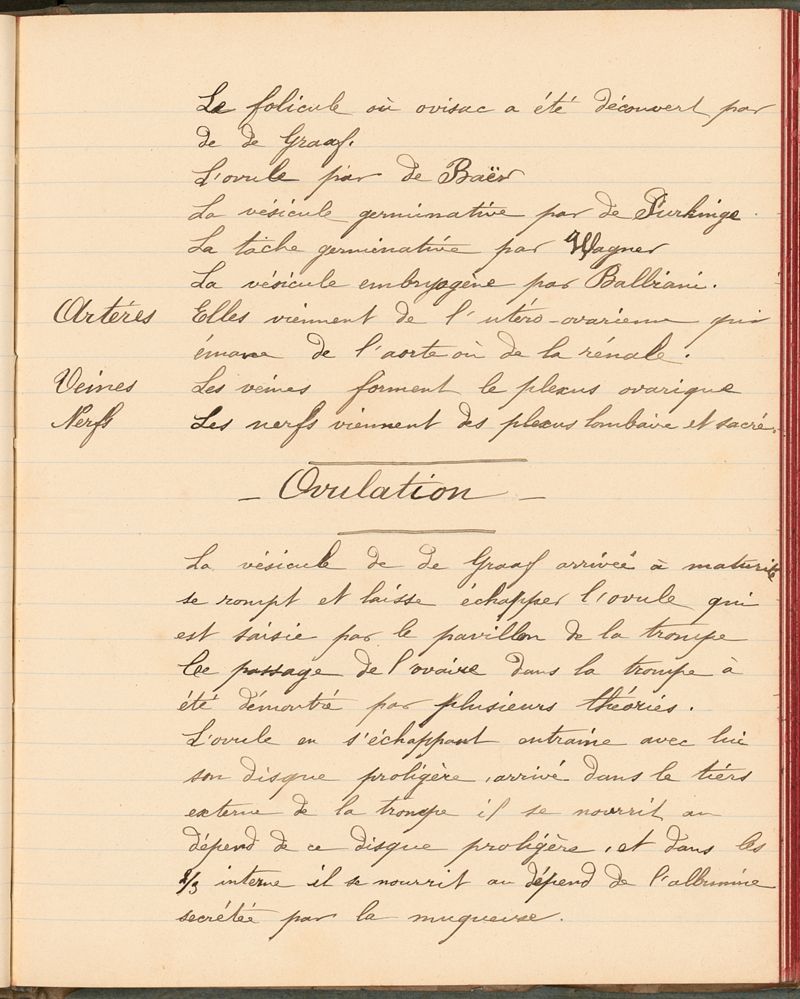 Le folicule où ovisac a été découvert par
de de Graaf.
L'ovule par de Baër
La vésicule germinative par de Purkinge.
La tâche germinative par Wagner
La vésicule embryogène par Balbiani.
Artéres Elles viennent de l'utéro-ovarienne qui
émane de l'aorte où de la rénale.
Veines Les veines forment le plexus ovarique
Nerfs Les nerfs viennent des plexus lombaire et sacré.
- Ovulation -
La vésicule de de Graaf arrivée à maturité
se rompt et laisse échapper l'ovule qui
est saisie par le pavillon de la trompe
Ce passage de l'ovaire dans la trompe à
été démontré par plusieurs théories.
L'ovule en s'échappant entraine avec lui
son disque proligère, arrivé dans le tiérs
externe de la trompe il se nourrit au
dépend de ce disque proligère, et dans les
2/3 interne il se nourrit au dépend de l'albumine
secrétée par la muqueuse.